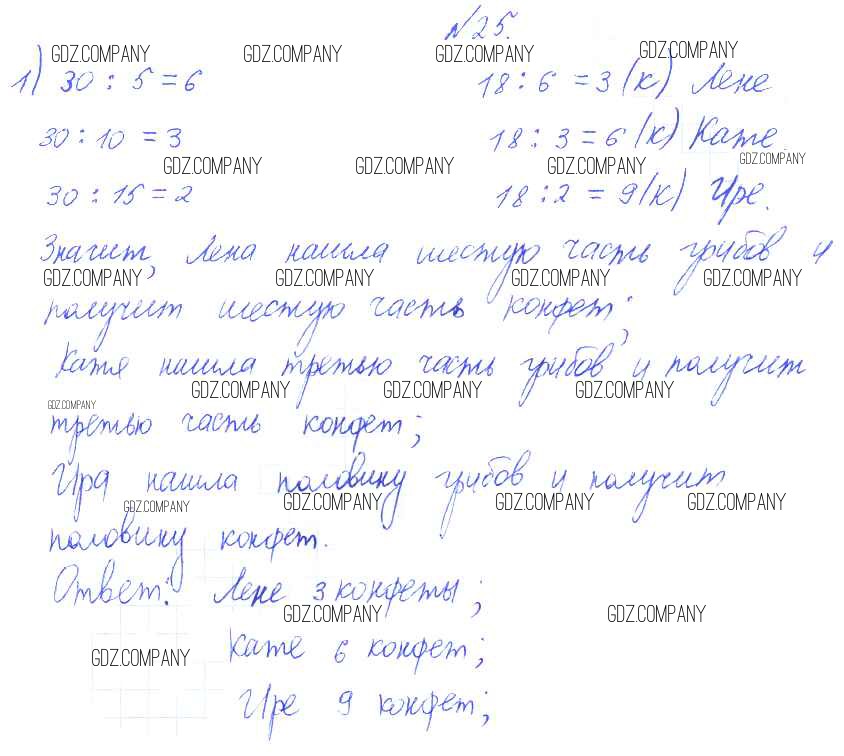 №25.
GDZ.COMPANY GDZ.COMPANY GDZ.COMPANY GDZ.COMPANY
1) 30 : 5 = 6 18 : 6 = 3 (к) Лене
30 : 10 = 3 18 : 3 = 6 (к) Кате.
GDZ.COMPANY GDZ.COMPANY GDZ.COMPANY GDZ.COMPANY
30 : 15 = 2 18 : 2 = 9 (к) Ире.
Значит, Лена нашла шестую часть грибов и
GDZ.COMPANY GDZ.COMPANY GDZ.COMPANY GDZ.COMPANY
получит шестую часть конфет;
Катя нашла третью часть грибов и получит
GDZ.COMPANY GDZ.COMPANY GDZ.COMPANY GDZ.COMPANY
третью часть конфет;
Ира нашла половину грибов и получит
GDZ.COMPANY GDZ.COMPANY GDZ.COMPANY GDZ.COMPANY
половину конфет.
Ответ: Лене 3 конфеты;
GDZ.COMPANY GDZ.COMPANY
Кате 6 конфет;
GDZ.COMPANY
Ире 9 конфет;